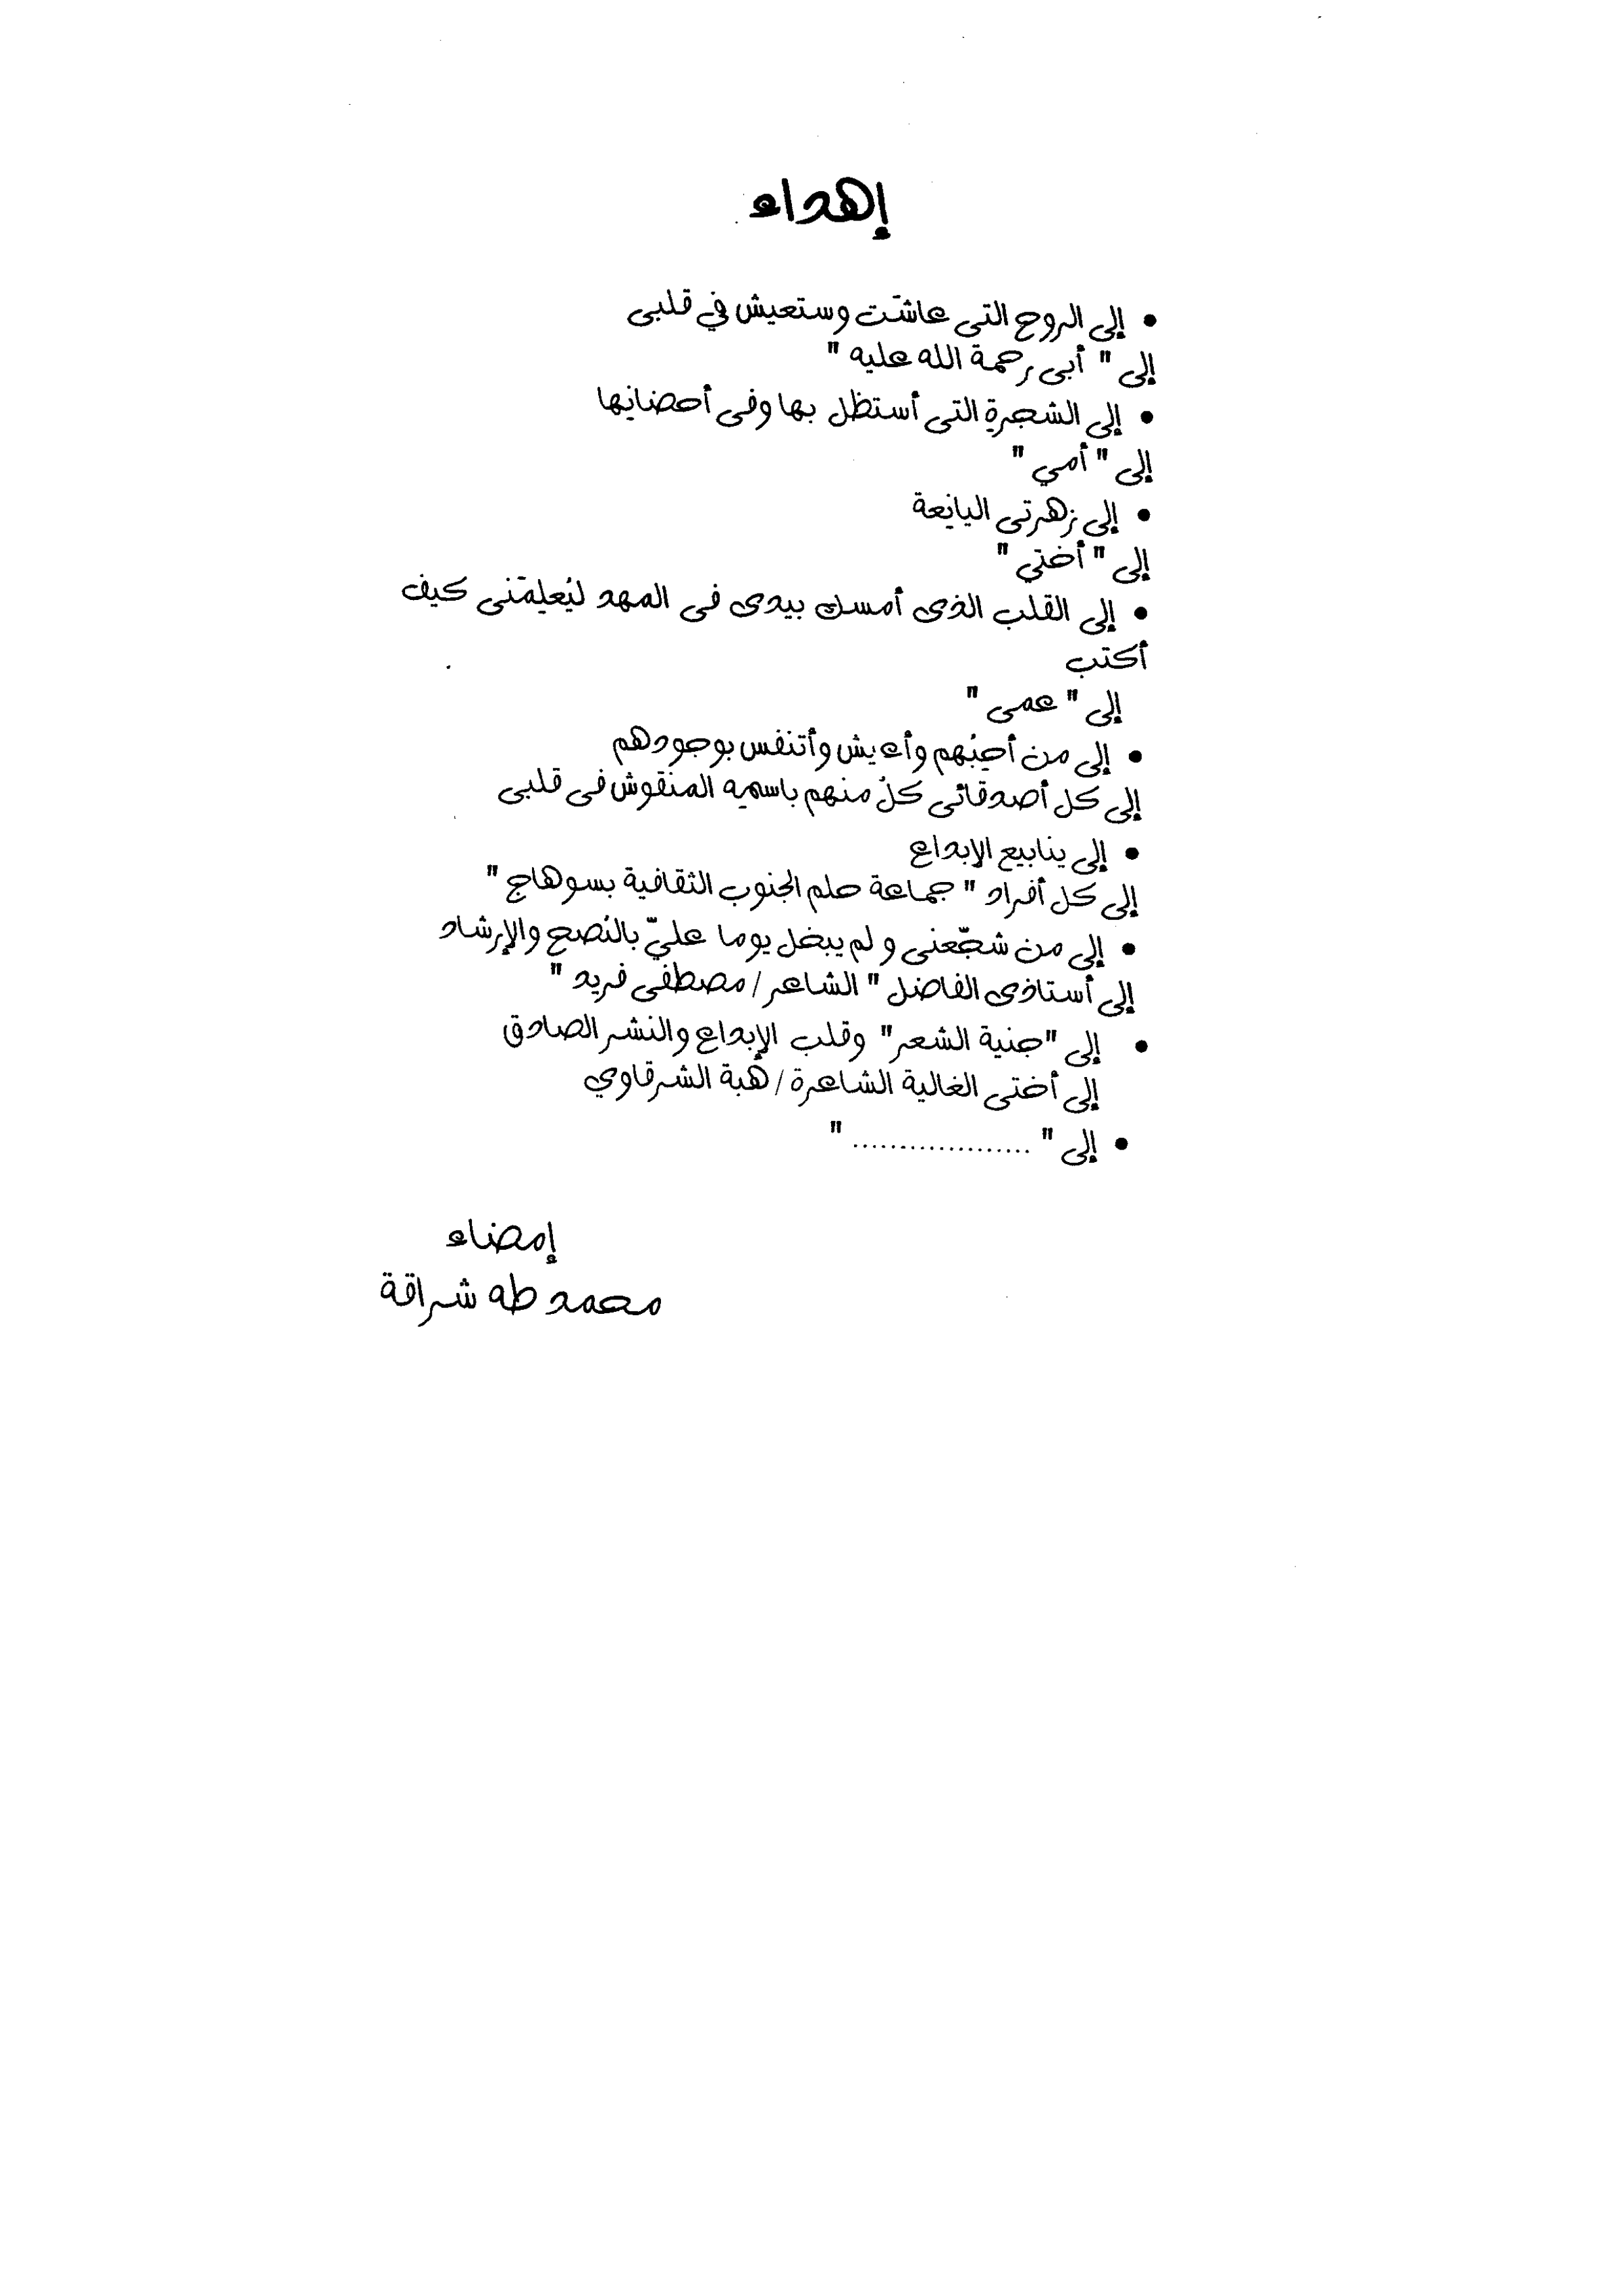 إهداء
• إلى الروح التى عاشت وستعيش في قلبى
إلى " أبى رحمة الله عليه "
• إلى الشجرة التى أستظل بها وفى أحضانها
إلى " أمي "
• إلى زهرتى اليانعة
إلى " أختي "
• إلى القلب الذى أمسك بيدى فى المهد ليُعلِمَنى كيف
أكتب
إلى " عمى "
• إلى من أحِبُهم وأعيش وأتنفس بوجودهم
إلى كل أصدقائى كلٌ منهم باسمِه المنقوش فى قلبى
• إلى ينابيع الإبداع
إلى كل أفراد " جماعة حلم الجنوب الثقافية بسوهاج "
• إلى من شجّعنى و لم يبخل يوما عليّ بالنُصح والإرشاد
إلى أستاذى الفاضل " الشاعر / مصطفى فريد "
• إلى "جنية الشعر" وقلب الإبداع والنشر الصادق
إلى أختى الغالية الشاعرة / هبة الشرقاوي
• إلى " ................... "
إمضاء
محمد طه شراقة